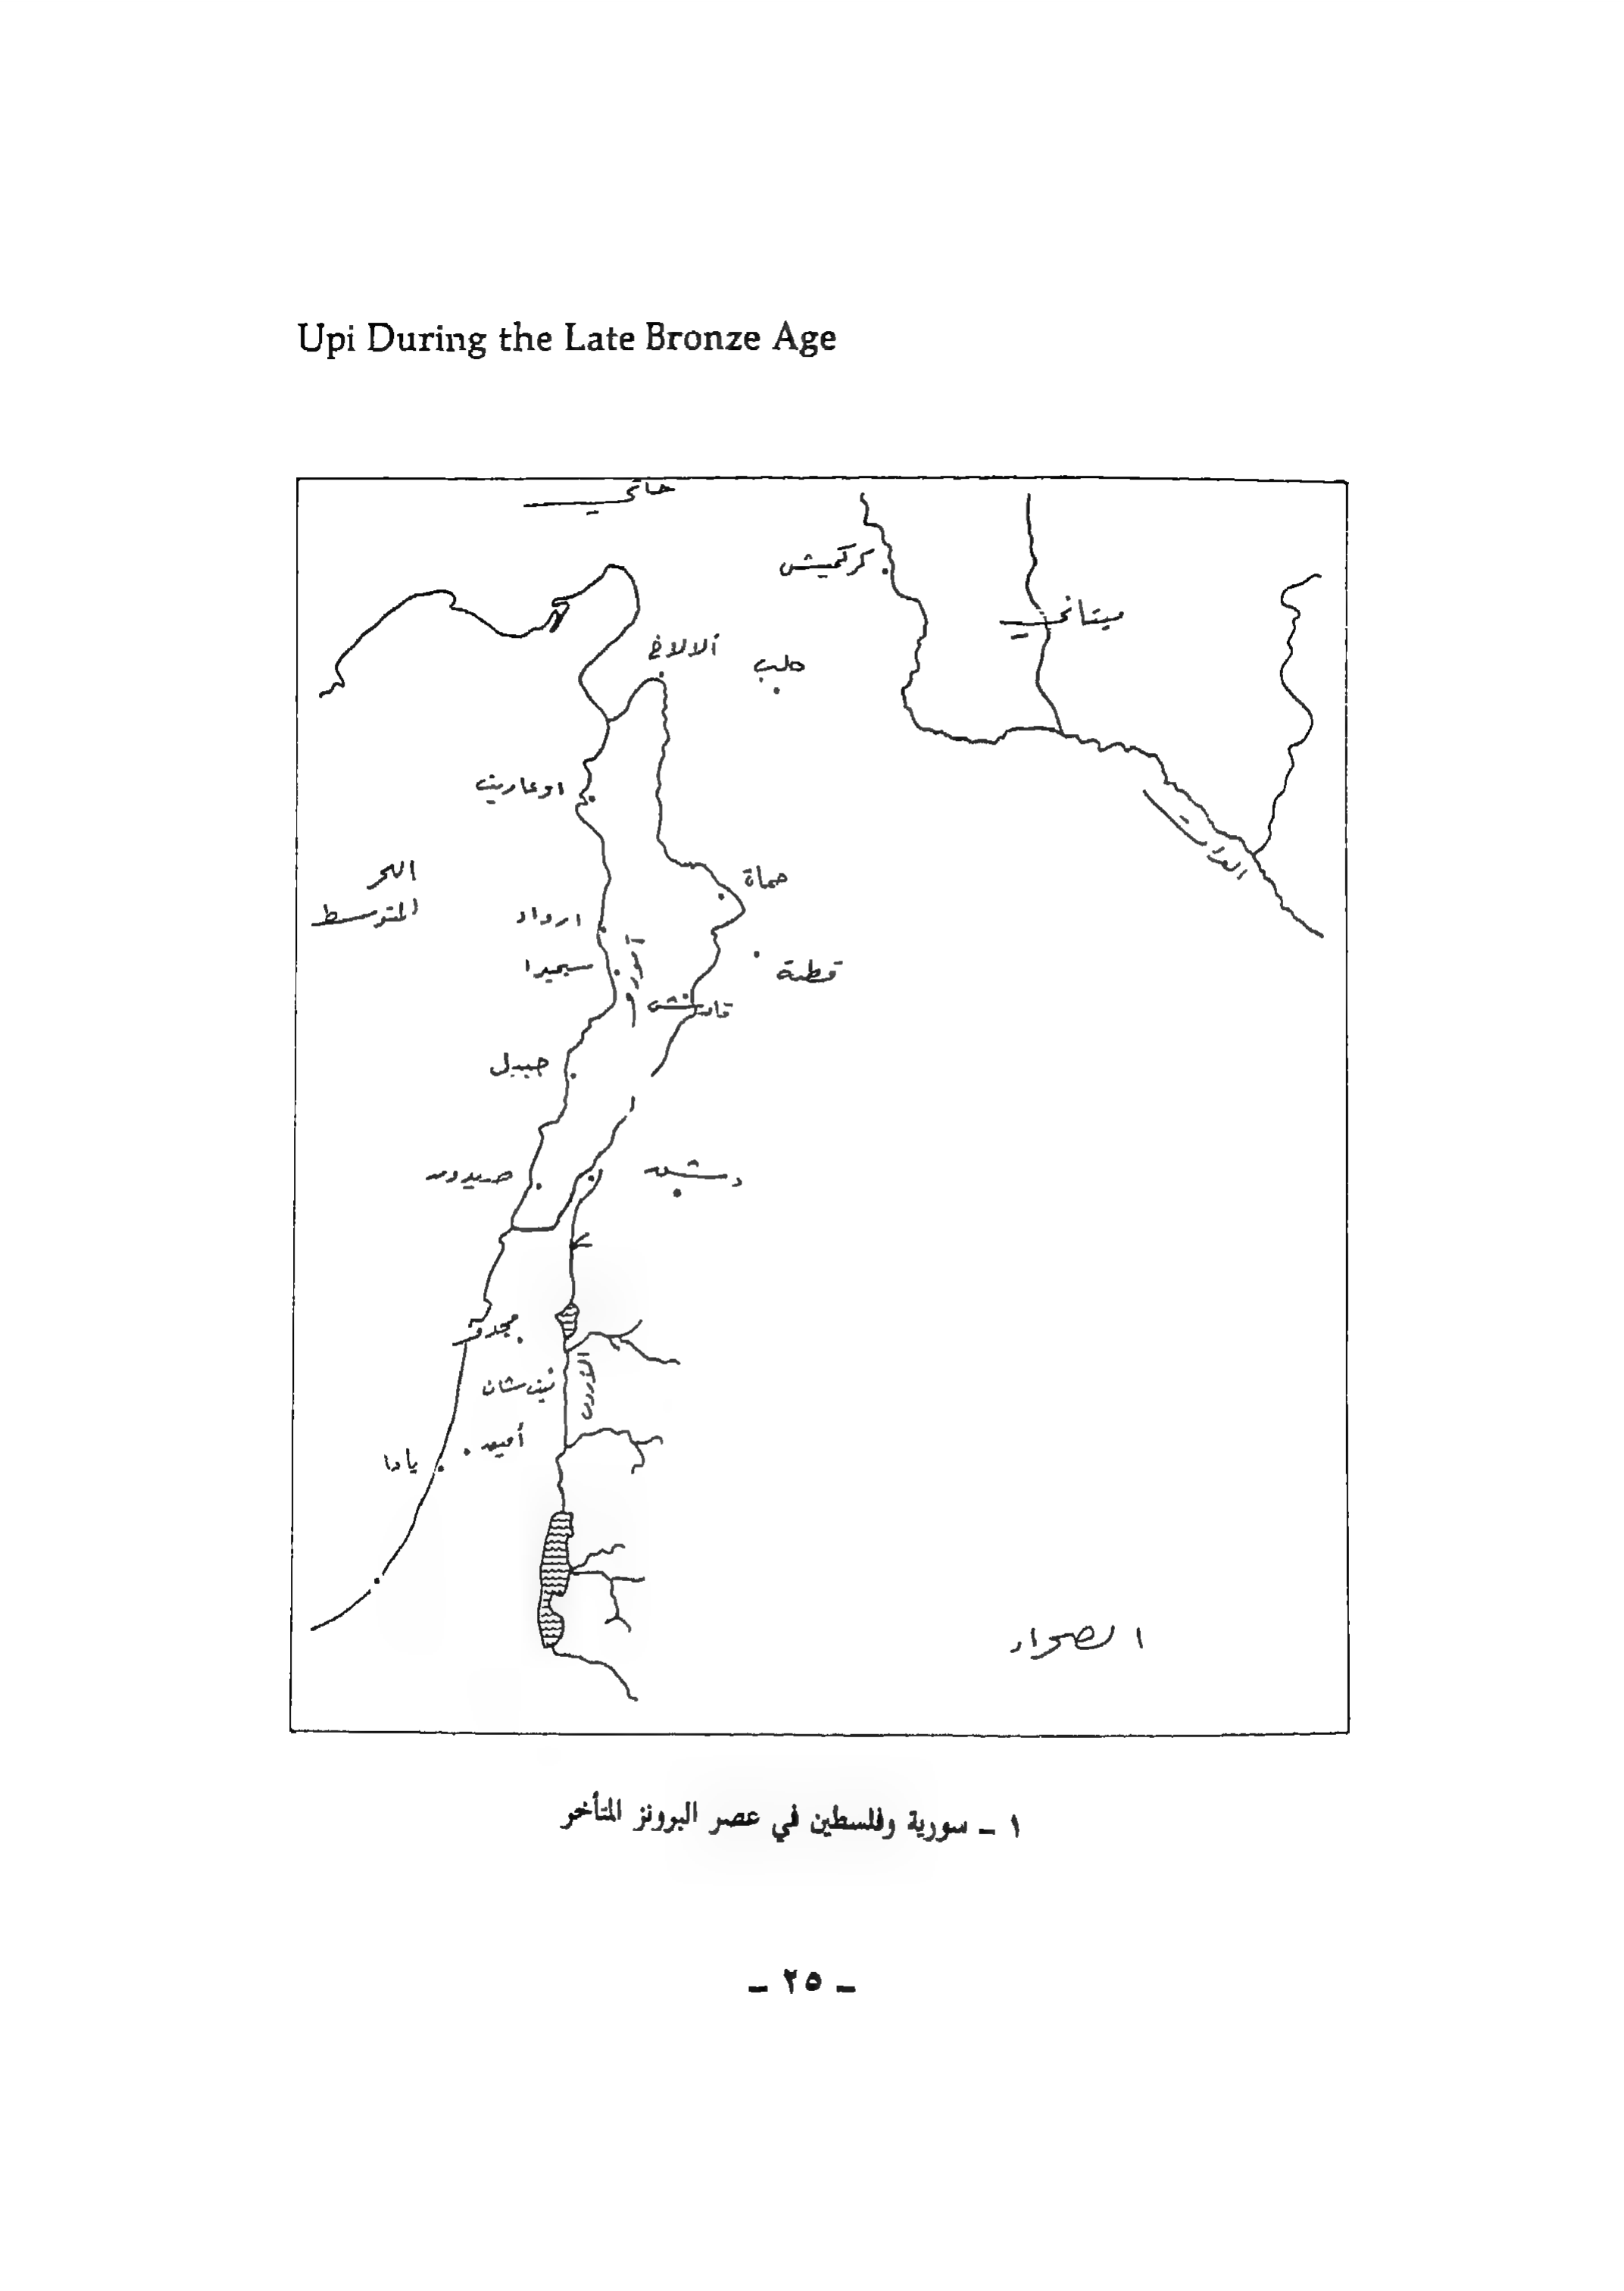 Upi During the Late Bronze Age
حاتي
كركميش
ميتاني
ألالاخ
حلب
اوغاريت
الفرات
البحر
المتوسط
حماة
ارواد
سيميرا
قطنة
قادش
جبيل
صيدون
دمشق
مجدو
الأردن
أفيق
يافا
الصحراء
١ ـ سورية وفلسطين في عصر البرونز المتأخر
ـ ٢٥ ـ